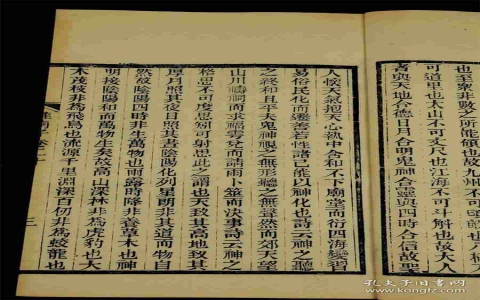 也至衆非數之所能領也故九州不可
可道里也太山不可丈尺也江海不可斗斛也故大人
者與天地合德日月合明鬼神合靈與四時合信故聖
人懷天氣抱天心執中含和不下廟堂而衍四海變習
易俗民化而遷善若性諸己能以神化也詩云神之聽
之終和且平夫鬼神視之無形聽之無聲然而郊天望
山川禱祠而求福雩兌而請雨卜筮而決事詩云神之
格思不可度思矧可射思此之謂也天致其高地致其
厚月照其夜日照其晝陰陽化列星朗非其道而物自
然故陰陽四時非生萬物也雨露時降非養草木也神
明接陰陽和而萬物生矣故高山深林非為虎豹也大
木茂枝非為飛鳥也流源千里淵深百仞非為蛟龍也
三
孔夫子旧书网
www.kongfz.com